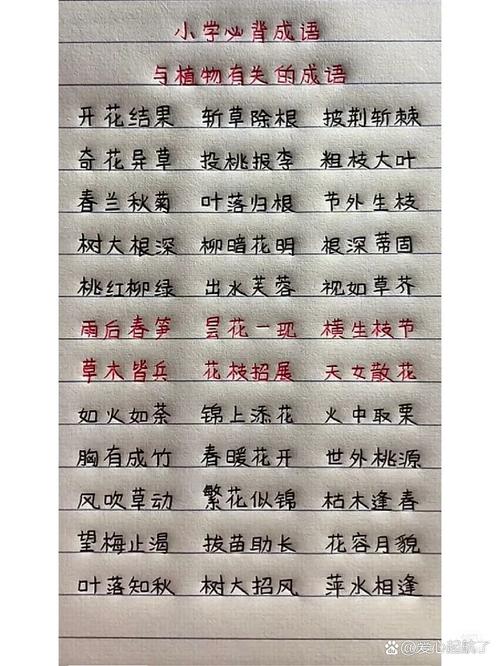 小学必背成语
与植物有关的成语
开花结果 斩草除根 披荆斩棘
奇花异草 投桃报李 粗枝大叶
春兰秋菊 叶落归根 节外生枝
树大根深 柳暗花明 根深蒂固
桃红柳绿 出水芙蓉 视如草芥
雨后春笋 昙花一现 横生枝节
草木皆兵 花枝招展 天女散花
如火如荼 锦上添花 火中取栗
胸有成竹 春暖花开 世外桃源
风吹草动 繁花似锦 枯木逢春
望梅止渴 拔苗助长 花容月貌
叶落知秋 树大招风 萍水相逢
@爱心起航了